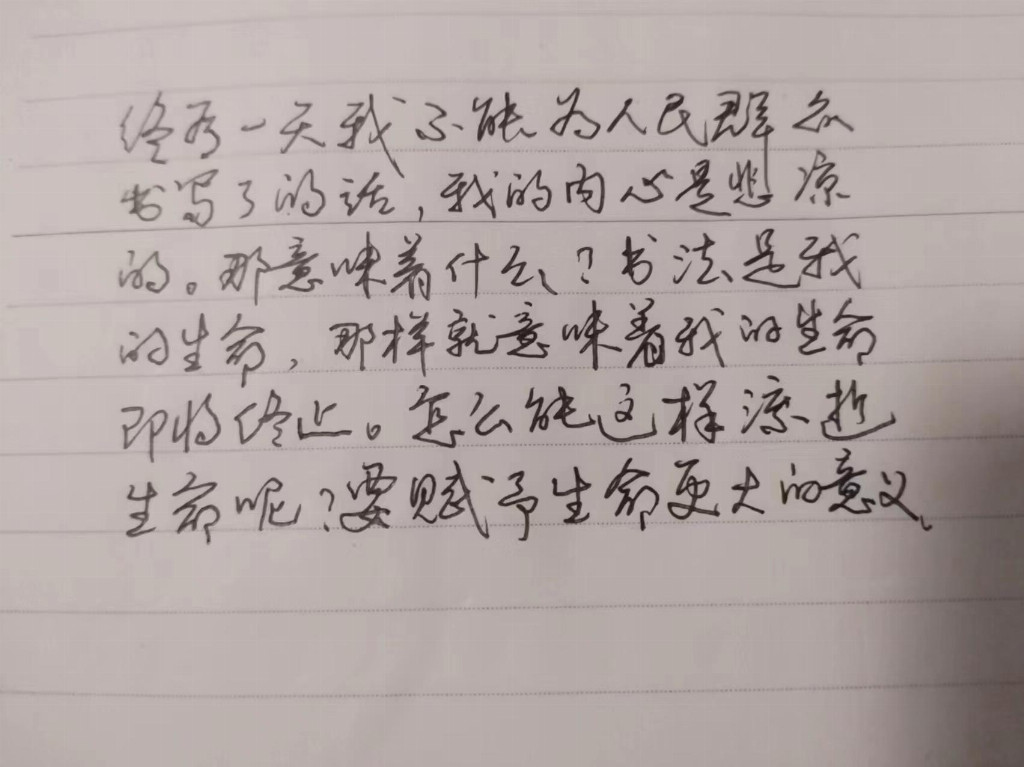 终有一天我不能为人民群众
书写了的话，我的内心是悲凉
的。那意味着什么？书法是我
的生命，那样就意味着我的生命
即将终止。怎么能这样凉逝
生命呢？要赋予生命更大的意义。